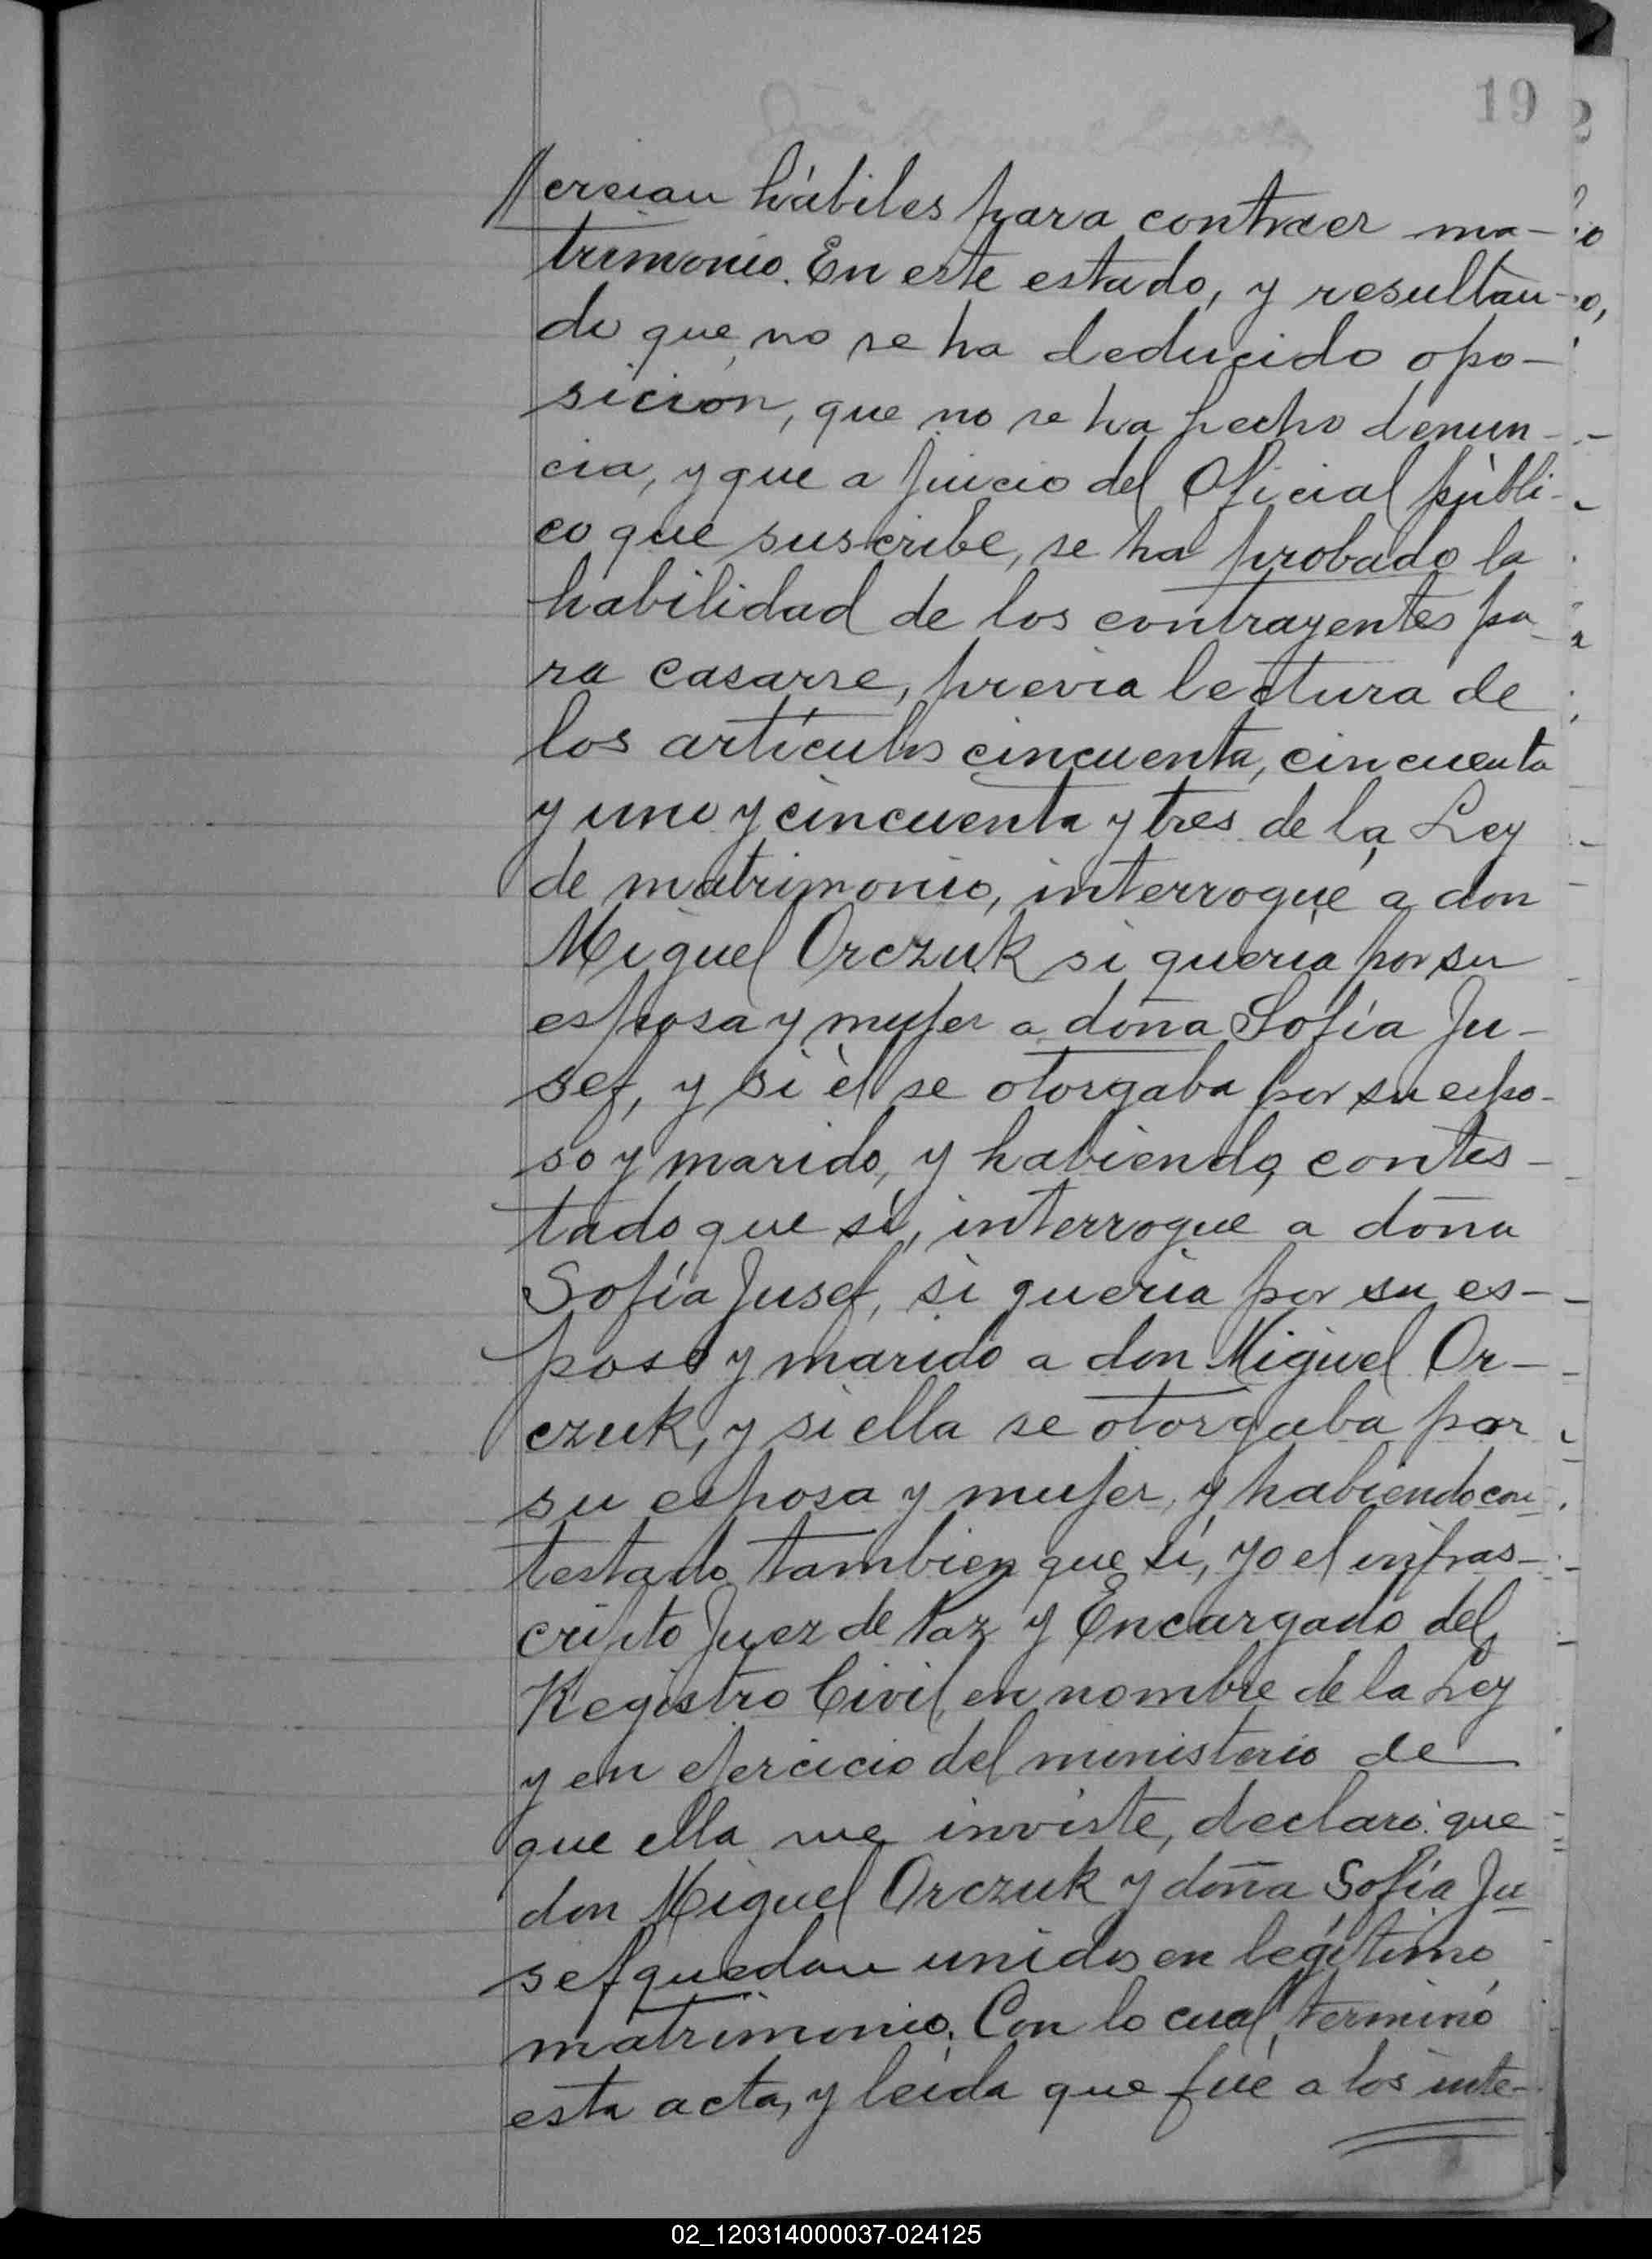 19
creian hábiles para contraer ma-
trimonio. En este estado, y resultan-
do que no se ha deducido opo-
sición, que no se ha hecho denun-
cia, y que a juicio del Oficial públi-
co que suscribe, se ha probado la
habilidad de los contrayentes pa-
ra casarse, previa lectura de
los artículos cincuenta, cincuenta
y uno y cincuenta y tres de la Ley
de matrimonio, interrogué a don
Miguel Orczuk si quería por su
esposa y mujer a doña Sofía Ju-
sef, y si èl se otorgaba por su espo-
so y marido, y habiendo contes-
tado que sí, interrogue a doña
Sofía Jusef, si queria por su es-
poso y marido a don Miguel Or-
czuk, y si ella se otorgaba por
su esposa y mujer, y habiendo con
testado tambien que sí, yo el infras-
cripto Juez de Paz y Encargado del
Registro Civil, en nombre de la Ley
y en ejercicio del ministerio de
que ella me inviste, declaró que
don Miguel Orczuk y doña Sofía Ju
sef quedan unidos en legítimo
matrimonio. Con lo cual terminó
esta acta, y leída que fué a los inte-
02_120314000037-024125